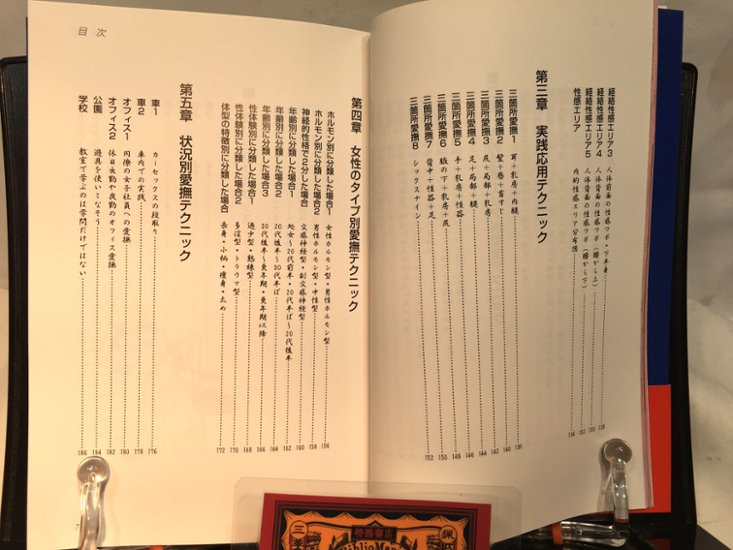 経絡性感エリア3 人体前面の性感ツボ・下半身 128
経絡性感エリア4 人体背面の性感ツボ(腰から上) 130
経絡性感エリア5 人体背面の性感ツボ(腰から下) 132
性感エリア 内的性感エリア分布図
第三章 実践応用テクニック
三箇所愛撫1 耳+乳房+内腿 138
三箇所愛撫2 髪+唇+首すじ 140
三箇所愛撫3 尻+局部+乳房 142
三箇所愛撫4 足+局部+腿 144
三箇所愛撫5 手+乳房+性器 146
三箇所愛撫6 脇の下+乳房+尻 148
三箇所愛撫7 背中+性器+足 150
三箇所愛撫8 シックスナイン 152
目次
第四章 女性のタイプ別愛撫テクニック
ホルモン別に分類した場合1 女性ホルモン型・男性ホルモン型 156
ホルモン別に分類した場合2 男性ホルモン型・中性型 158
神経的性格で2分した場合 交感神経型・副交感神経型 160
年齢別に分類した場合1 処女〜20代前半・20代半ば〜20代後半 162
年齢別に分類した場合2 20代後半〜30代半ば 164
年齢別に分類した場合3 30代後半〜更年期・更年期以降 166
性体験別に分類した場合1 遊び型・熟練型 168
性体験別に分類した場合2 多淫型・トラウマ型 170
体型の特徴別に分類した場合 長身・小柄・痩身・太め 172
第五章 状況別愛撫テクニック
車1 カーセックスの段取り 176
車2 車内での実践 178
オフィス1 同僚の女子社員への愛撫 180
オフィス2 休日出勤や夜勤のオフィス愛撫 182
公園 遊具を使いこなそう 184
学校 教室で学ぶのは学問だけではない 186
特殊書店